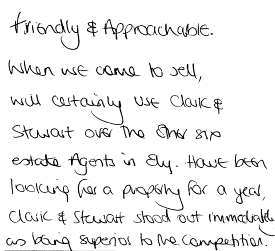 Friendly & Approachable.
When we come to sell,
will certainly use Clark &
Stewart over the other six
estate Agents in Ely. Have been
looking for a property for a year,
Clark & Stewart stood out immediately
as being superior to the competition.